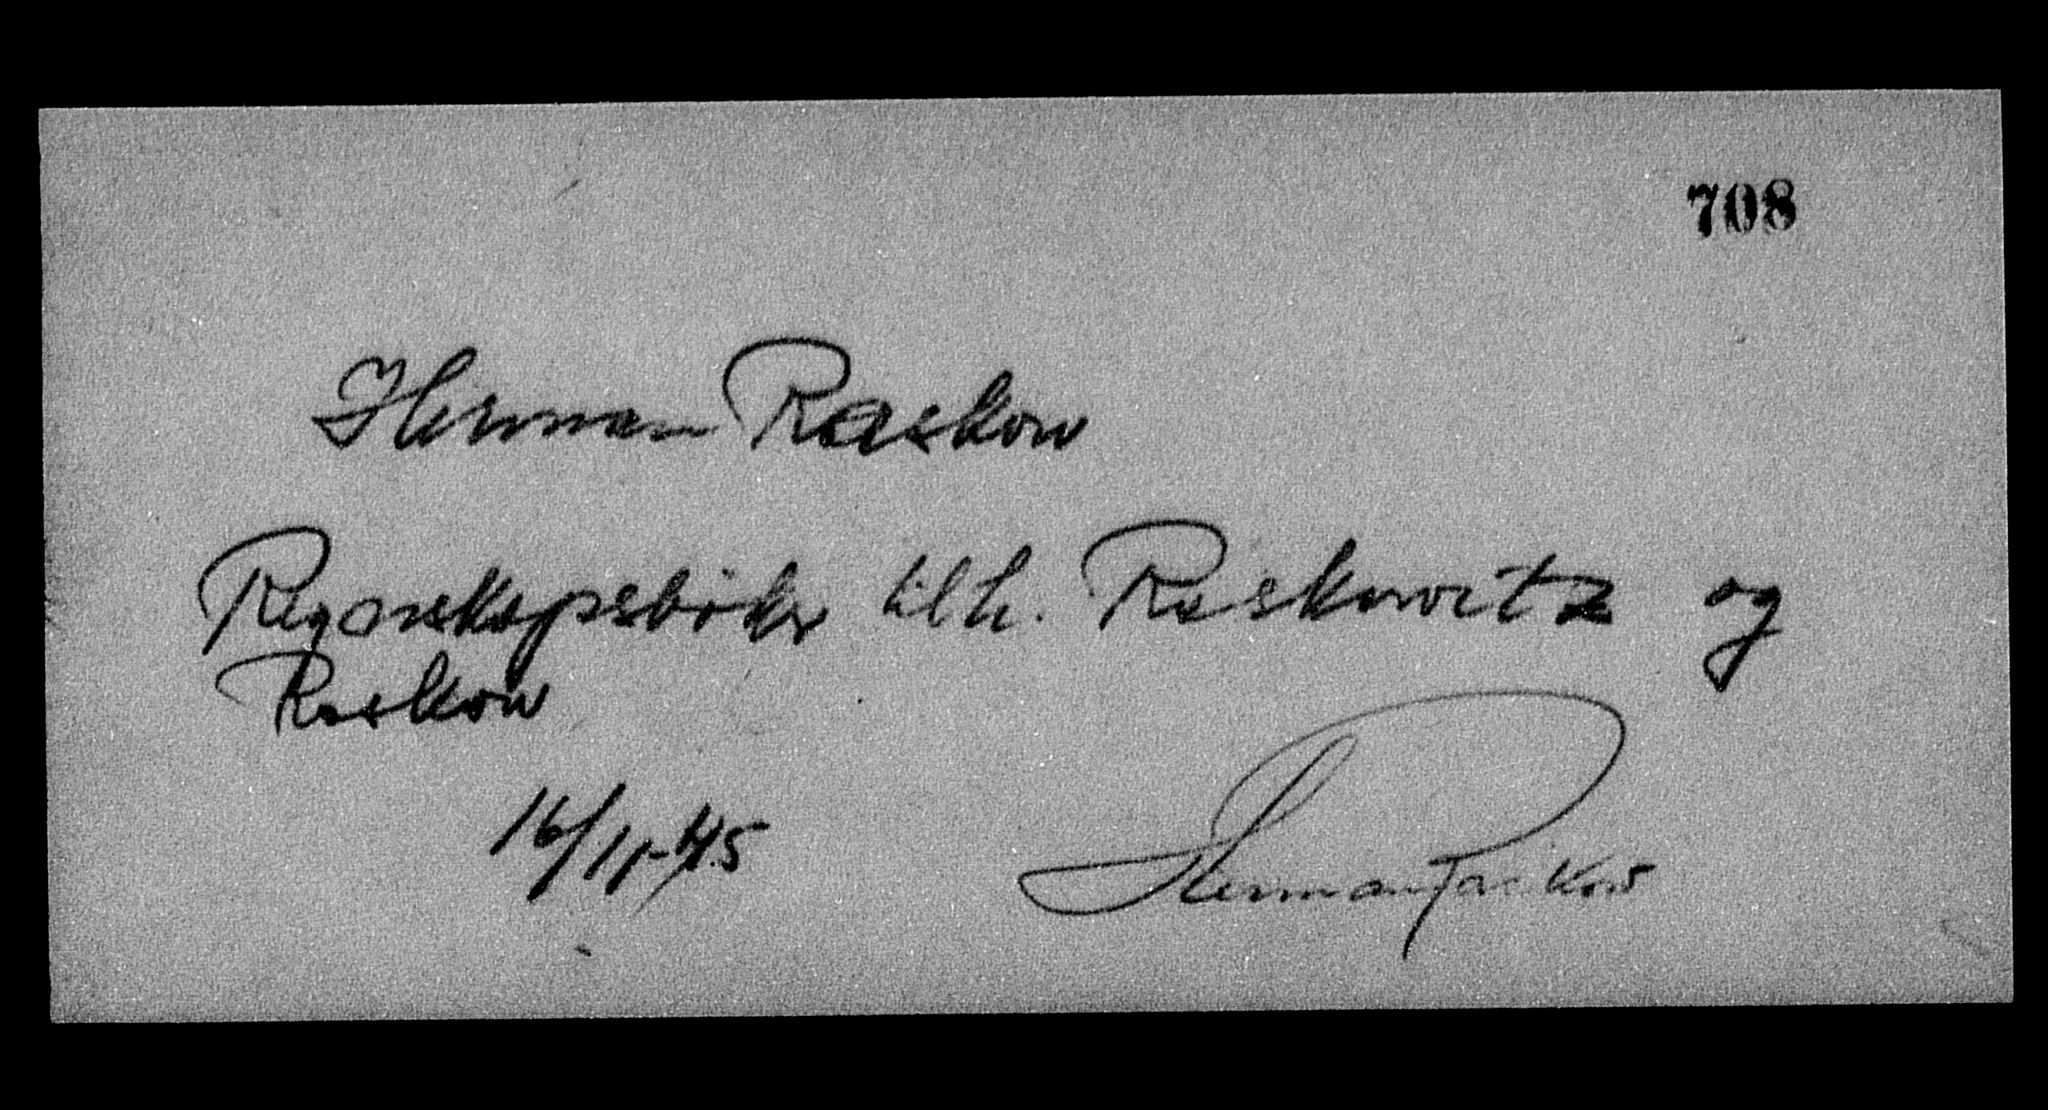 708
Herman Raskow
Regnskapsbøker tilh. Raskowitz og
Raskow
16/11-45
Herman Raskow